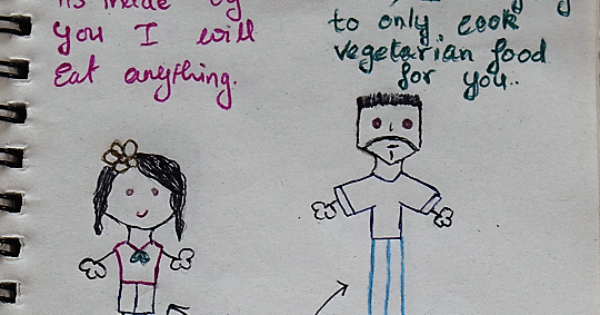 made by
you I will
Eat anything.
to only cook
vegetarian food
for you..